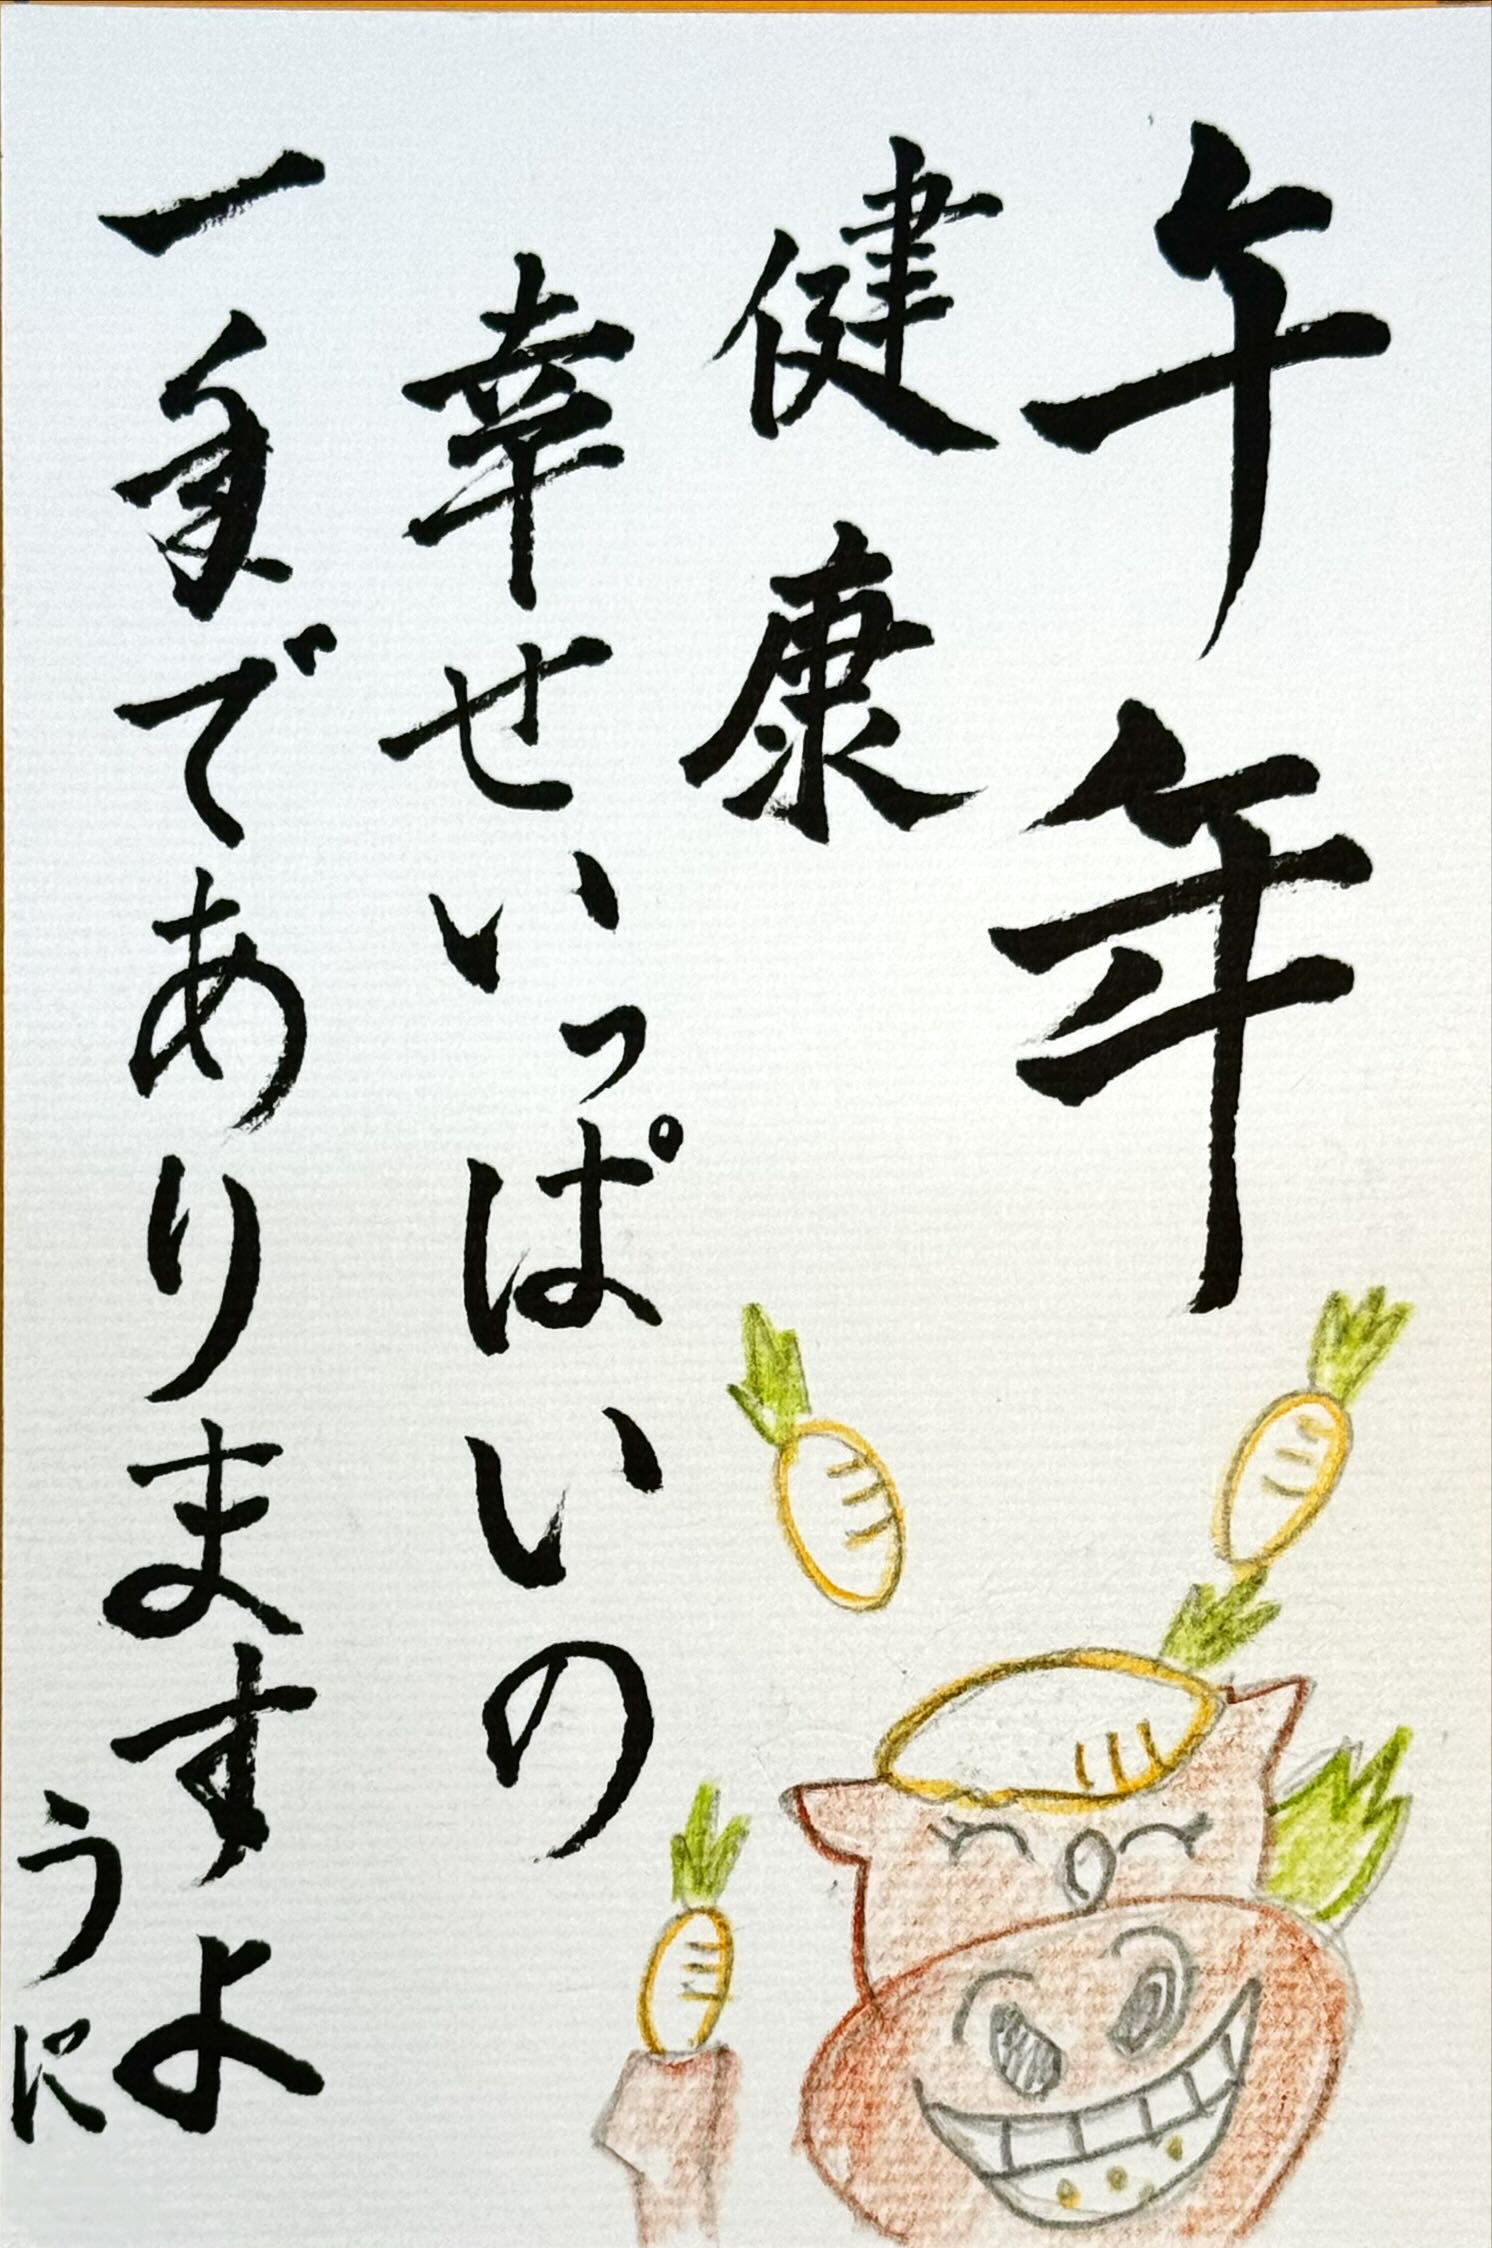 午年
健康
幸せいっぱいの
一年でありますよ
うに